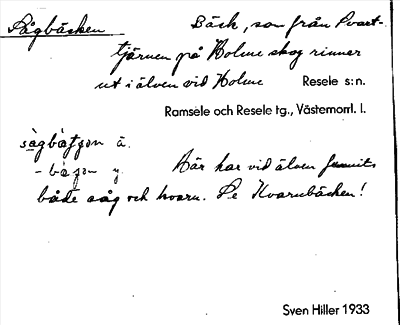 Sågbäcken Bäck, som från Svart-
tjärnen på Holme skog rinner
ut i älven vid Holme Resele s:n.
Ramsele och Resele tg., Västernorrl. l.
sàgbátjɘn ä.
- bàʒɘn y. Här har vid älven funnits
både såg och kvarn. Se Kvarnbäcken!
Sven Hiller 1933